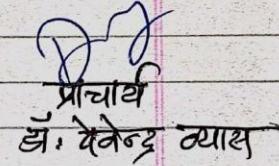 प्राचार्य
डॉ. देवेन्द्र व्यास